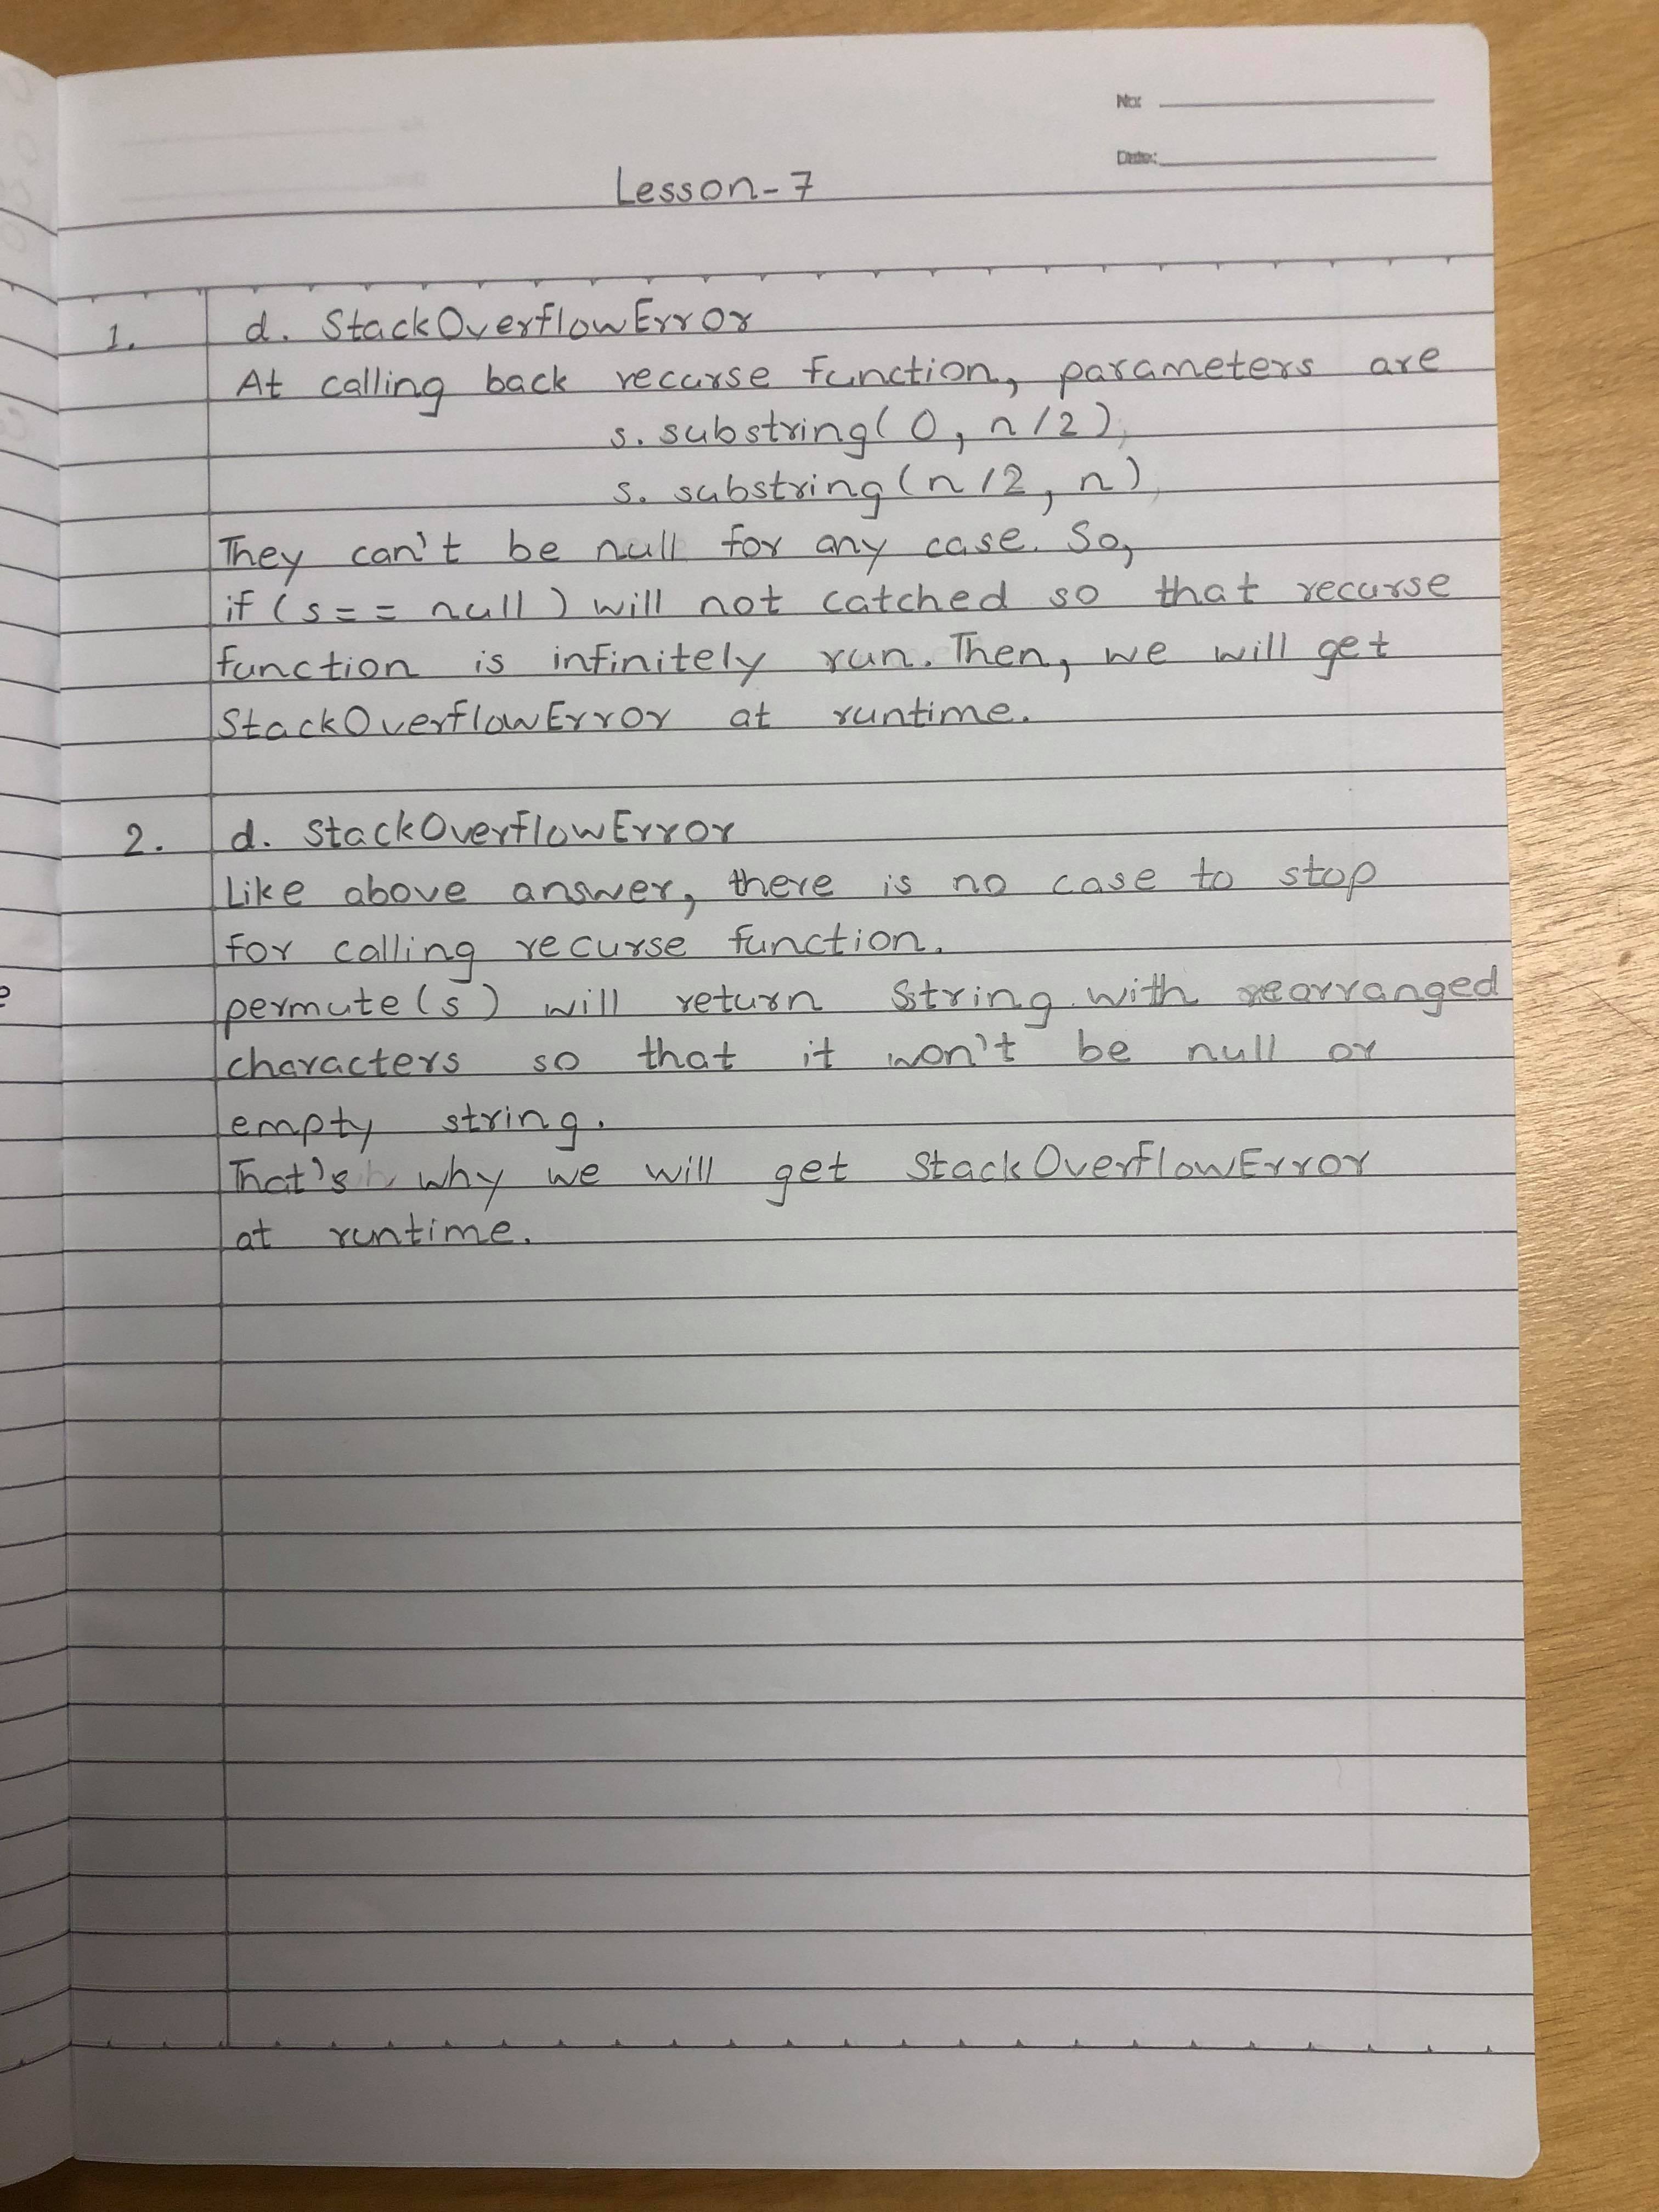 No:
Date:
Lesson-7
1. d. StackOverflowError
At calling back recurse function, parameters are
s. substring(0, n/2)
s. substring(n/2, n)
They can't be null for any case. So,
if (s == null) will not catched so that recurse
function is infinitely run. Then, we will get
StackOverflowError at runtime.
2. d. StackOverflowError
Like above answer, there is no case to stop
for calling recurse function.
permute(s) will return String with rearranged
characters so that it won't be null or
empty string.
That's why we will get StackOverflowError
at runtime.